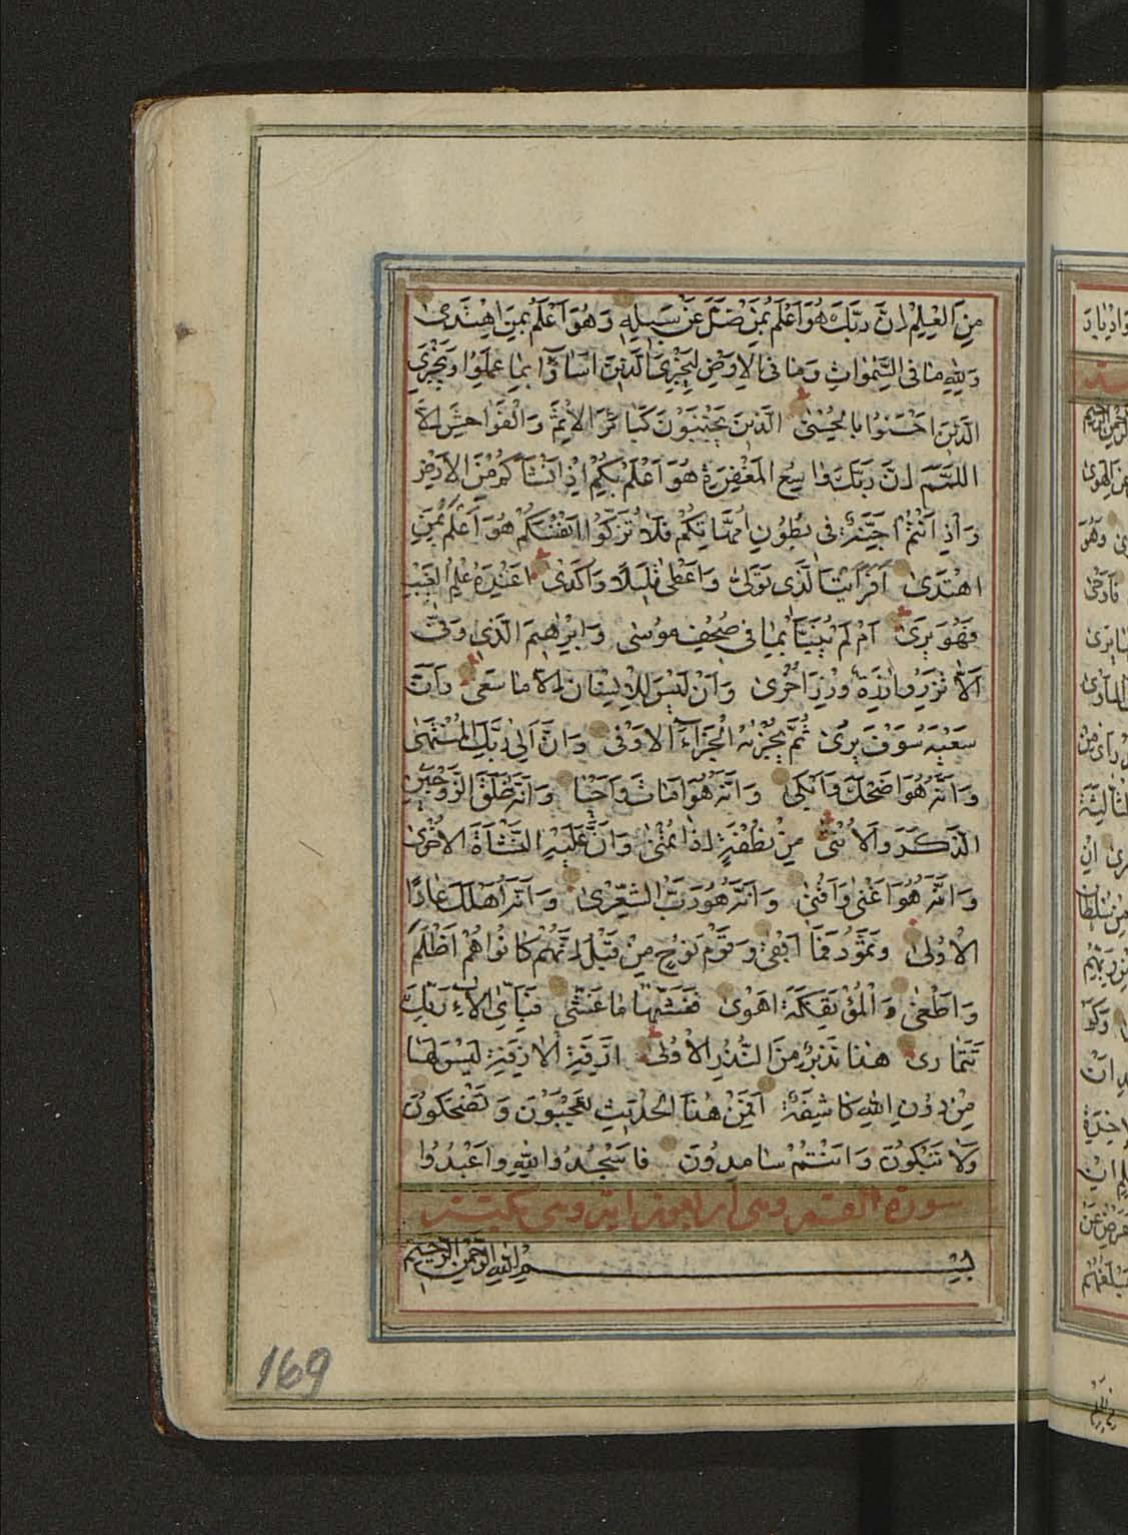 مِنَ الْعِلْمِ اِنَّ رَبَّكَ هُوَ اَعْلَمُ بِمَنْ ضَلَّ عَنْ سَبِيلِهِ وَهُوَ اَعْلَمُ بِمَنِ اهْتَدَىٰ
وَلِلّٰهِ مَا فِى السَّمٰوَاتِ وَمَا فِى الْاَرْضِ لِيَجْزِىَ الَّذِينَ اَسَاؤُا بِمَا عَمِلُوا وَيَجْزِيَ
الَّذِينَ اَحْسَنُوا بِالْحُسْنَىٰ الَّذِينَ يَجْتَنِبُونَ كَبَائِرَ الْاِثْمِ وَالْفَوَاحِشَ اِلَّا
اللَّمَمَ اِنَّ رَبَّكَ وَاسِعُ الْمَغْفِرَةِ هُوَ اَعْلَمُ بِكُمْ اِذْ اَنْشَاَكُمْ مِنَ الْاَرْضِ
وَاِذْ اَنْتُمْ اَجِنَّةٌ فِى بُطُونِ اُمَّهَاتِكُمْ فَلَا تُزَكُّوا اَنْفُسَكُمْ هُوَ اَعْلَمُ بِمَنِ
اهْتَدَىٰ اَفَرَاَيْتَ الَّذِى تَوَلَّىٰ وَاَعْطَىٰ قَلِيلًا وَاَكْدَىٰ اَعِنْدَهُ عِلْمُ الْغَيْبِ
فَهُوَ يَرَىٰ اَمْ لَمْ يُنَبَّأْ بِمَا فِى صُحُفِ مُوسَى وَاِبْرٰهِيمَ الَّذِى وَفَّىٰ
اَلَّا تَزِرُ وَازِرَةٌ وِزْرَ اُخْرَىٰ وَاَنْ لَيْسَ لِلْاِنْسَانِ اِلَّا مَا سَعَىٰ وَاَنَّ
سَعْيَهُ سَوْفَ يُرَىٰ ثُمَّ يُجْزٰيهُ الْجَزَاءَ الْاَوْفَىٰ وَاَنَّ اِلَىٰ رَبِّكَ الْمُنْتَهَىٰ
وَاَنَّهُ هُوَ اَضْحَكَ وَاَبْكَىٰ وَاَنَّهُ هُوَ اَمَاتَ وَاَحْيَا وَاَنَّهُ خَلَقَ الزَّوْجَيْنِ
الذَّكَرَ وَالْاُنْثَىٰ مِنْ نُطْفَةٍ اِذَا تُمْنَىٰ وَاَنَّ عَلَيْهِ النَّشْاَةَ الْاُخْرَىٰ
وَاَنَّهُ هُوَ اَغْنَىٰ وَاَقْنَىٰ وَاَنَّهُ هُوَ رَبُّ الشِّعْرَىٰ وَاَنَّهُ اَهْلَكَ عَادًا
الْاُولَىٰ وَثَمُودَ فَمَا اَبْقَىٰ وَقَوْمَ نُوحٍ مِنْ قَبْلُ اِنَّهُمْ كَانُوا هُمْ اَظْلَمَ
وَاَطْغَىٰ وَالْمُؤْتَفِكَةَ اَهْوَىٰ فَغَشّٰيهَا مَا غَشَّىٰ فَبِاَىِّ اٰلَاءِ رَبِّكَ
تَتَمَارَىٰ هٰذَا نَذِيرٌ مِنَ النُّذُرِ الْاُولَىٰ اَزِفَتِ الْاٰزِفَةُ لَيْسَ لَهَا
مِنْ دُونِ اللّٰهِ كَاشِفَةٌ اَفَمِنْ هٰذَا الْحَدِيثِ تَعْجَبُونَ وَتَضْحَكُونَ
وَلَا تَبْكُونَ وَاَنْتُمْ سَامِدُونَ فَاسْجُدُوا لِلّٰهِ وَاعْبُدُوا
سورة القمر
بِسْمِ اللّٰهِ الرَّحْمٰنِ الرَّحِيمِ
169